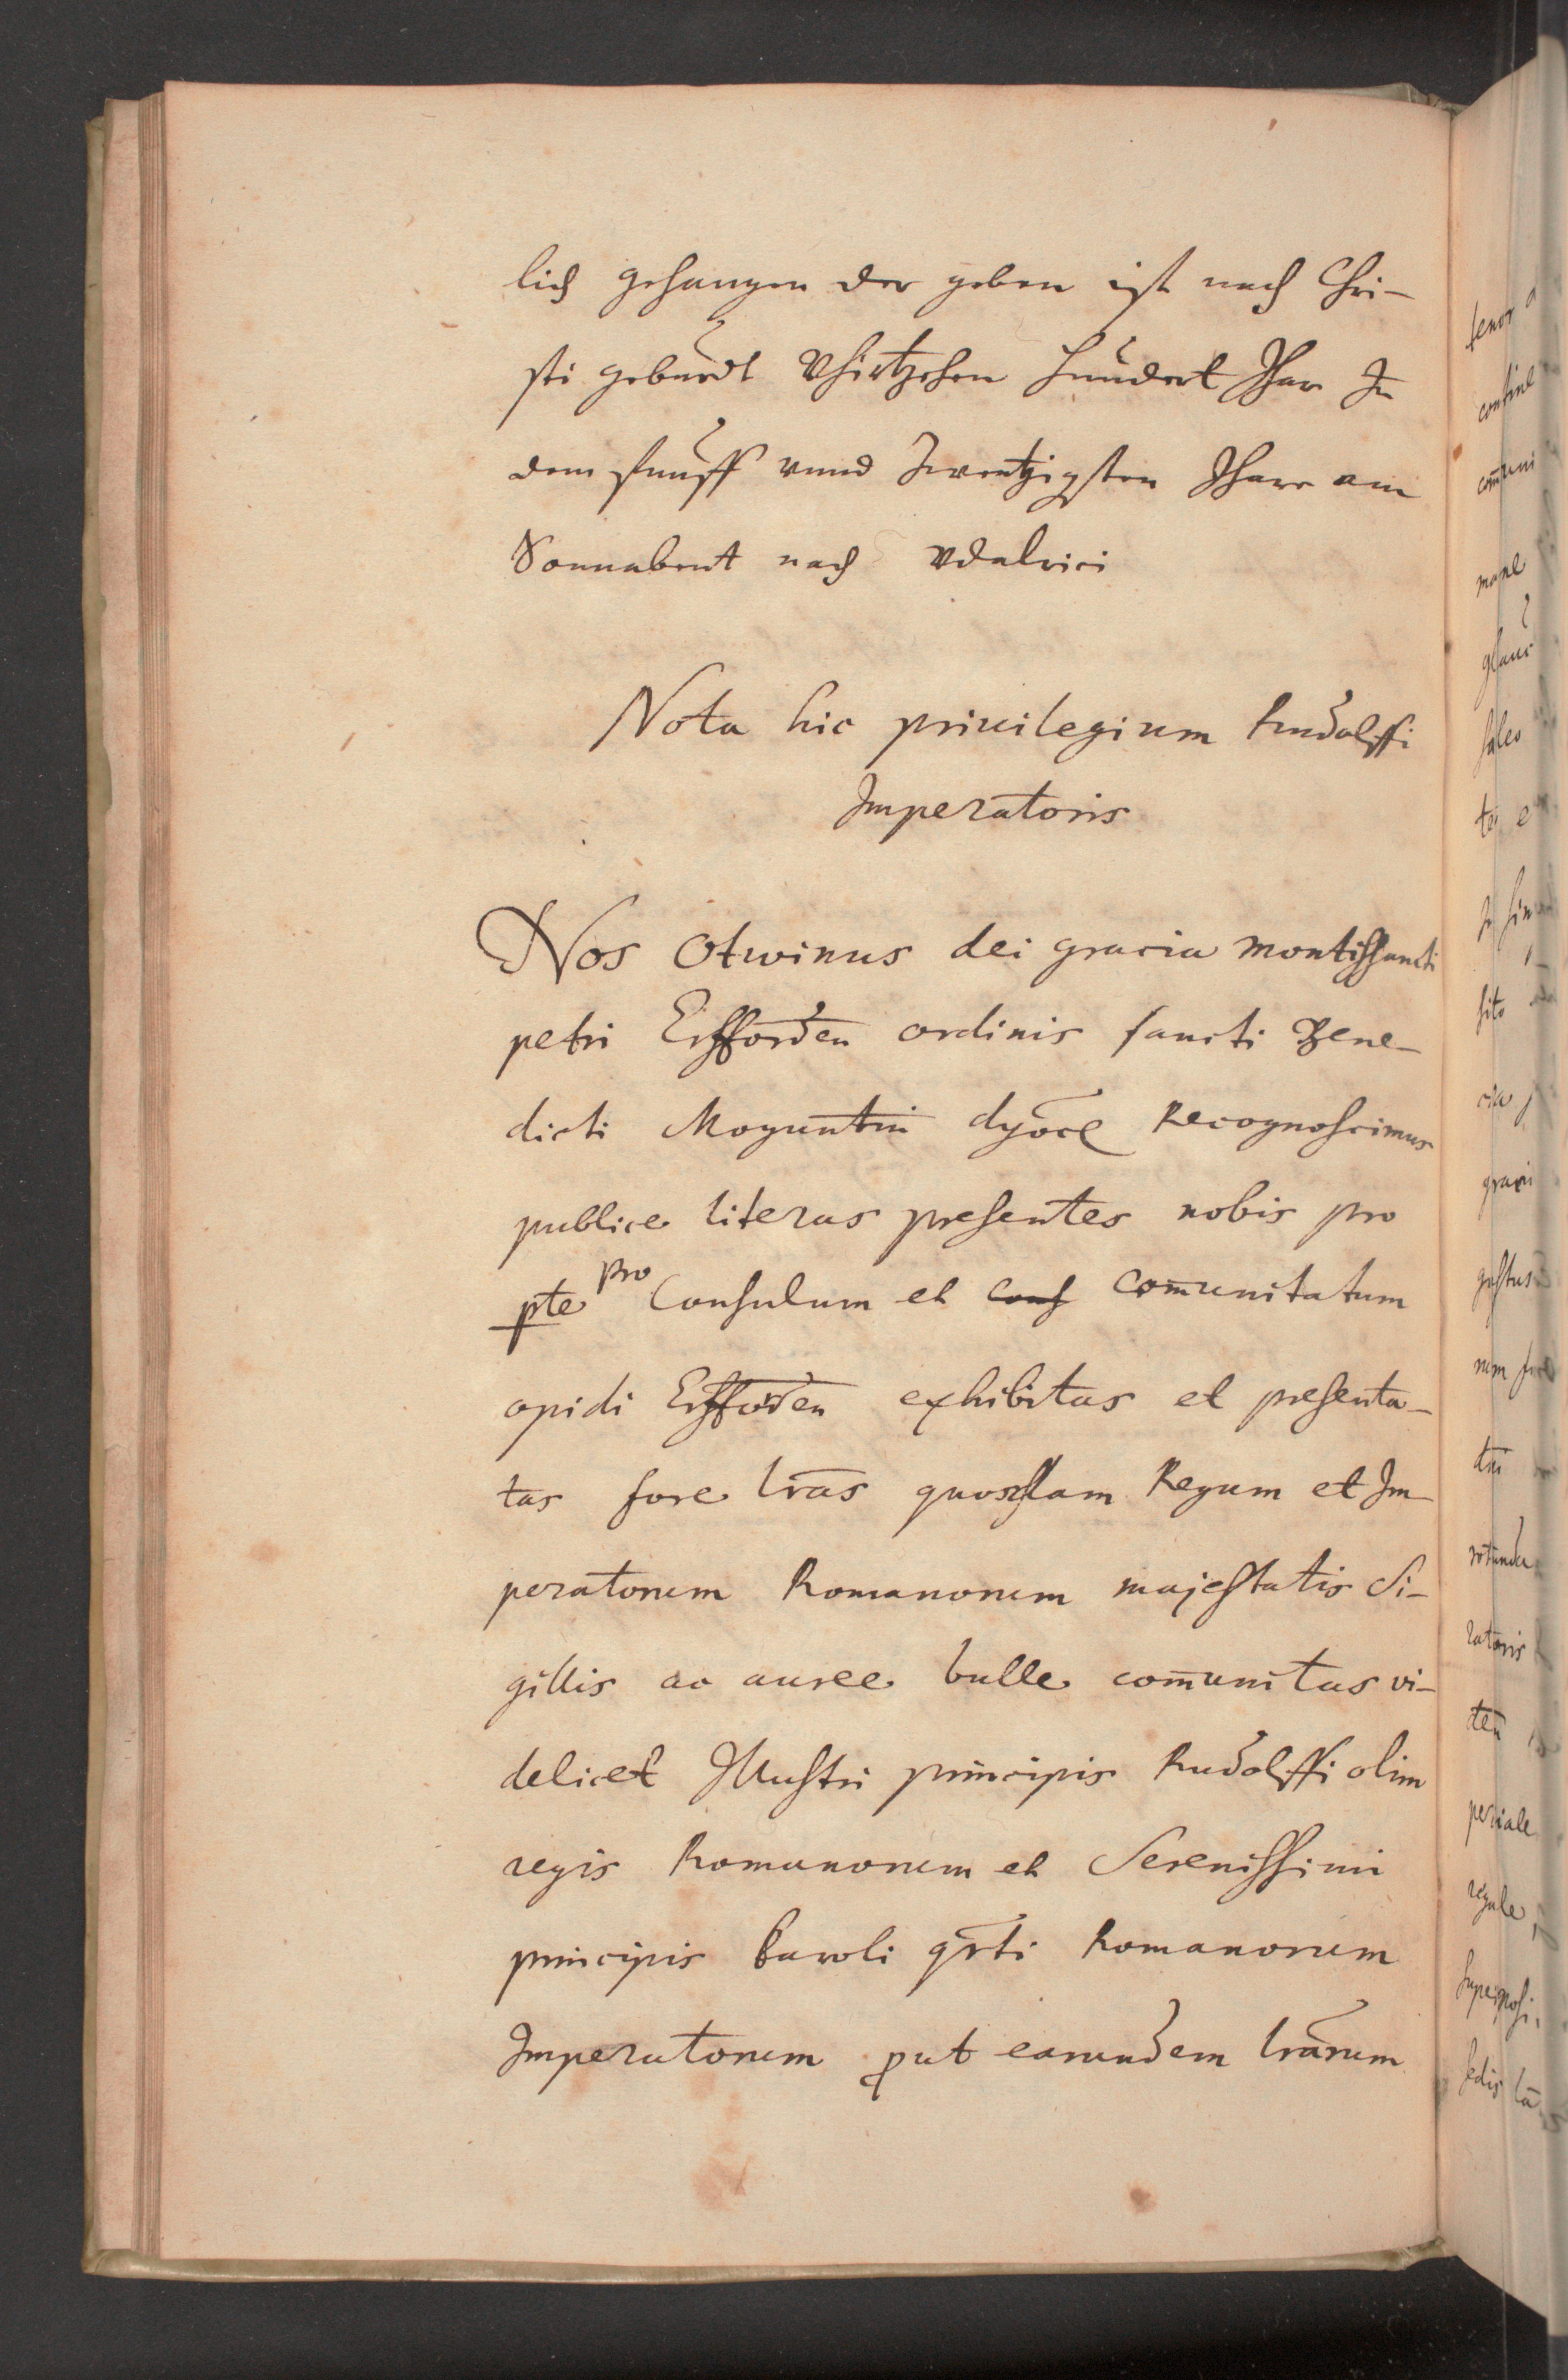 lich gehangen der geben ist nach Chri-
sti geburdt Vhirtzehen hundert Jhar In
dem funff vnnd Zwentzigsten Jhare am
Sonnabent nach Vdalrici
Nota hic priuilegium Rudolffi
Imperatoris
Nos Otwinus dei gracia montis sancti
petri Erffordeñ ordinis sancti Bene-
dicti Moguntiñ dyoc̄ Recognoscimus
publice literas presentes nobis pro
pte pro Consulum et cons com̄unitatum
opidi Erffordeñ exhibitas et presenta-
tas fore lr̄as quorundam Regum et Im-
peratorum Romanorum majestatis Si-
gillis ac auree bulle com̄unitas vi-
delicet Illustri principis Rudolffi olim
regis Romanorum et Serenissimi
principis Karoli qr̄ti Romanorum
Imperatorum ꝓut earundem lr̄arum